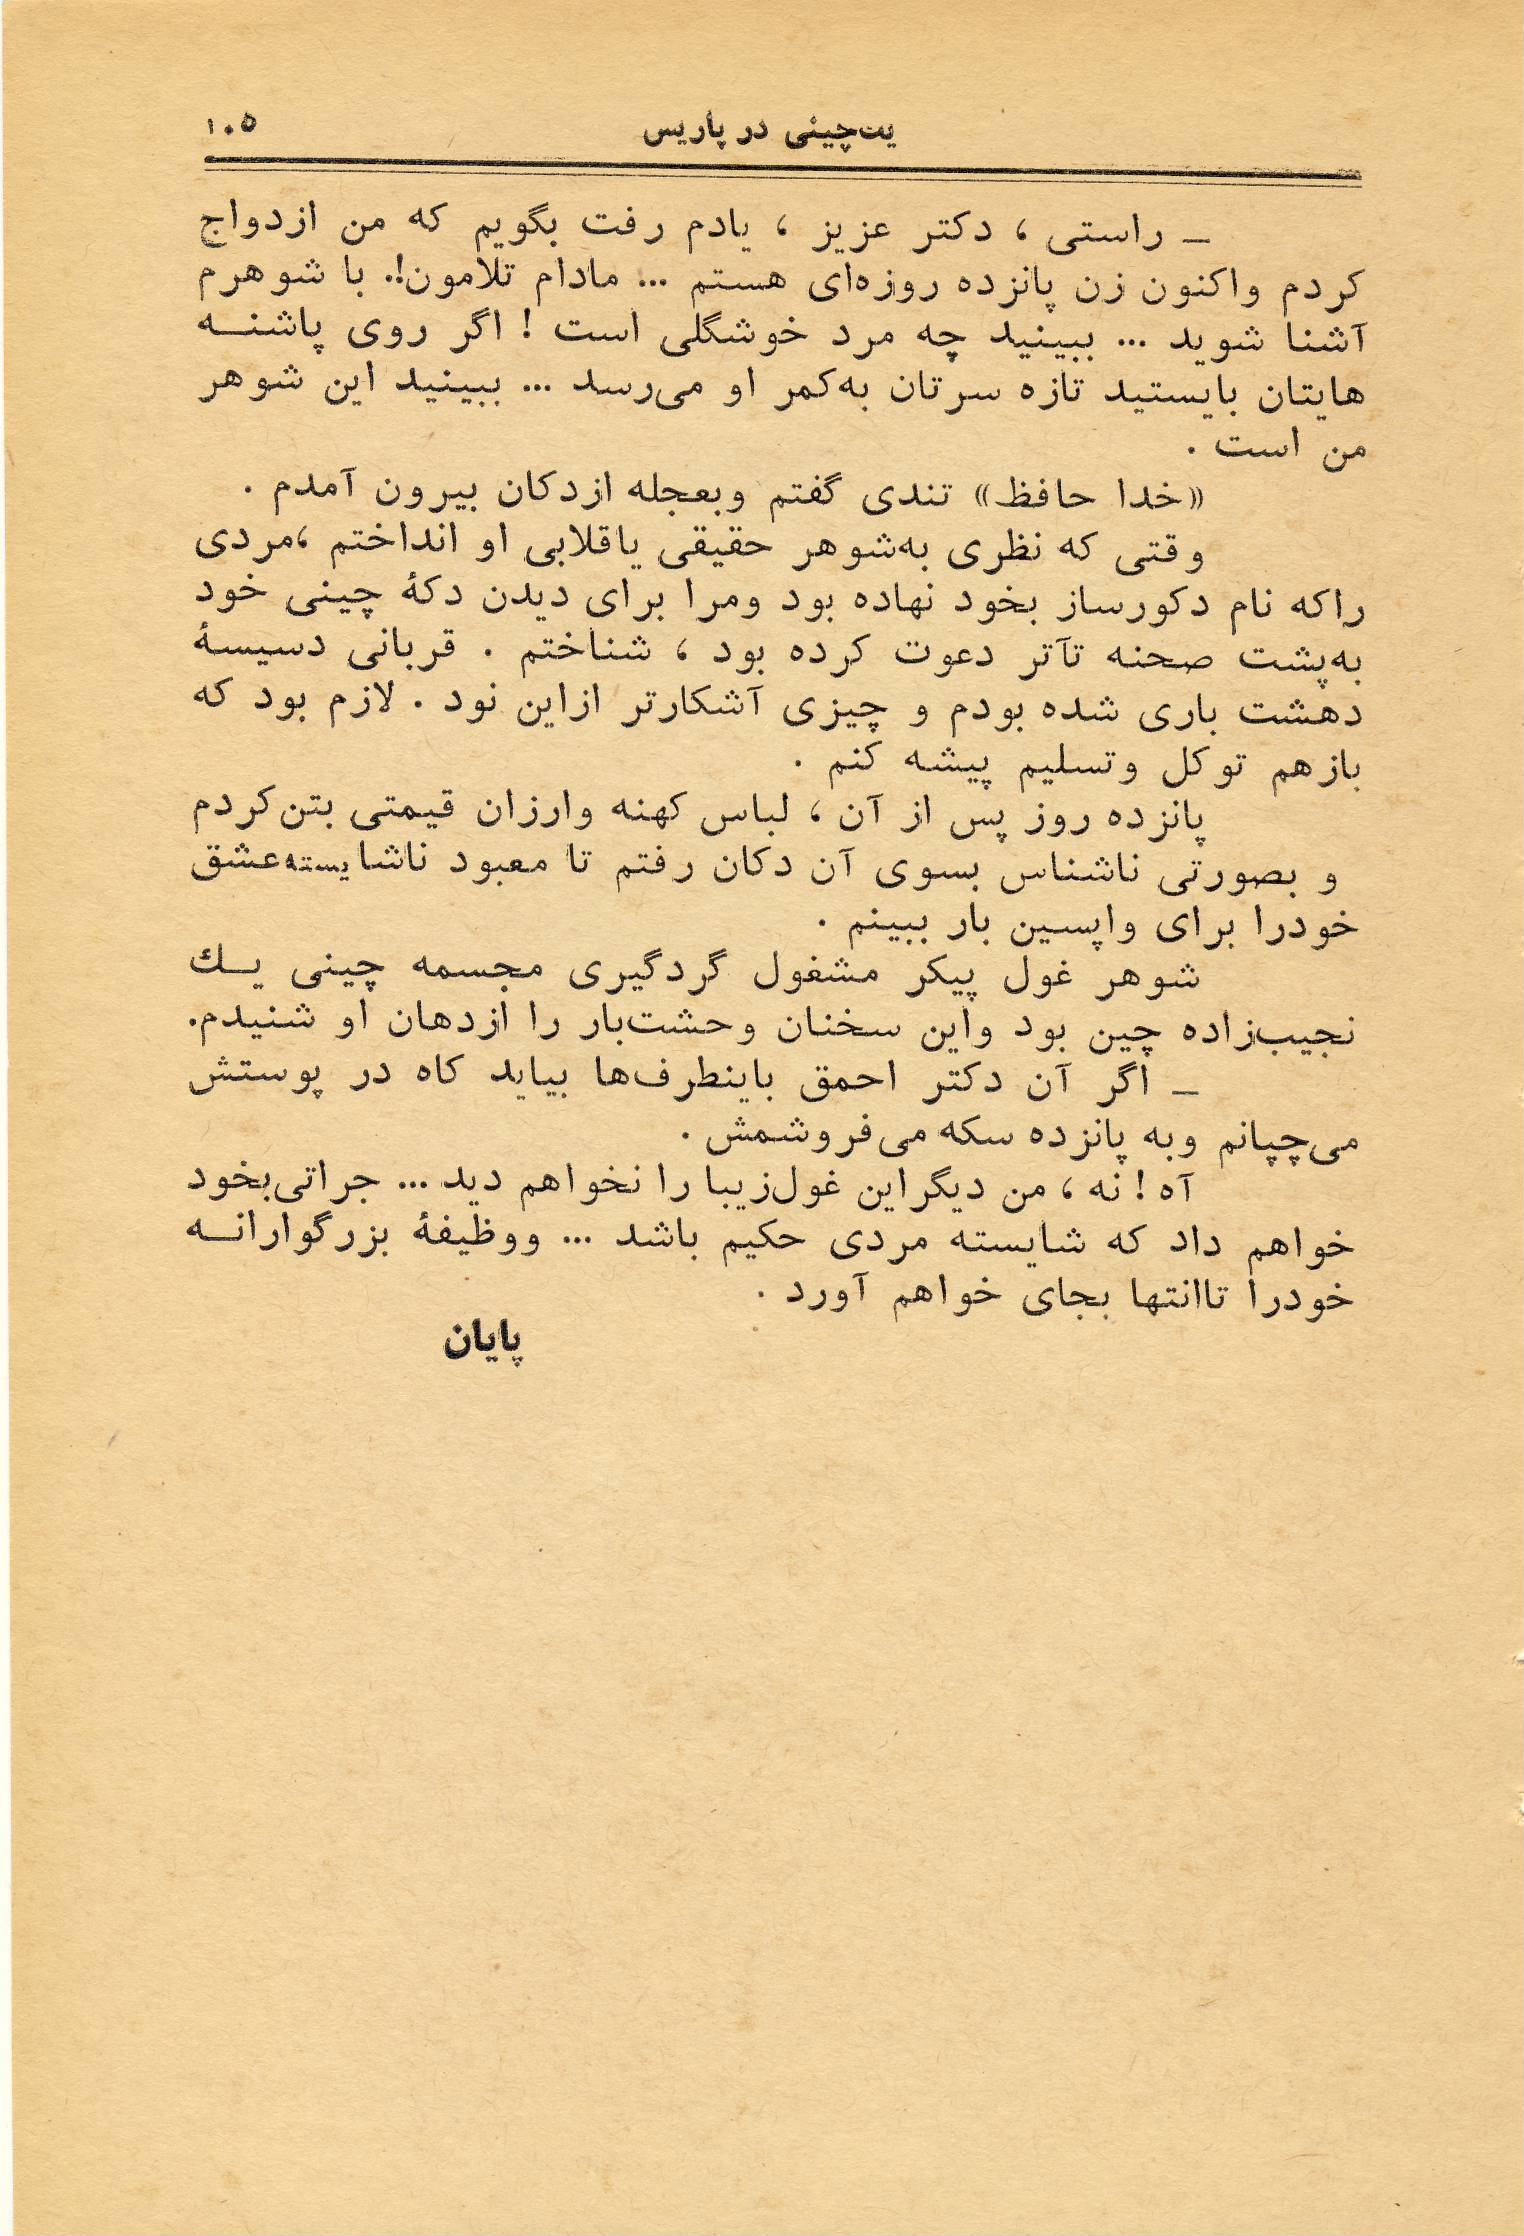 یک‌چینی در پاریس ۱۰۵
ـ راستی ، دکتر عزیز ، یادم رفت بگویم که من ازدواج
کردم واکنون زن پانزده روزه‌ای هستم ... مادام تلامون!. با شوهرم
آشنا شوید ... ببینید چه مرد خوشگلی است ! اگر روی پاشنـه
هایتان بایستید تازه سرتان به‌کمر او می‌رسد ... ببینید این شوهر
من است .
«خدا حافظ» تندی گفتم وبعجله ازدکان بیرون آمدم .
وقتی که نظری به‌شوهر حقیقی یاقلابی او انداختم ،مردی
راکه نام دکورساز بخود نهاده بود ومرا برای دیدن دکهٔ چینی خود
به‌پشت صحنه تآتر دعوت کرده بود ، شناختم . قربانی دسیسهٔ
دهشت باری شده بودم و چیزی آشکارتر ازاین نود . لازم بود که
بازهم توکل وتسلیم پیشه کنم .
پانزده روز پس از آن ، لباس کهنه وارزان قیمتی بتن‌کردم
و بصورتی ناشناس بسوی آن دکان رفتم تا معبود ناشایسته‌عشق
خودرا برای واپسین بار ببینم .
شوهر غول پیکر مشغول گردگیری مجسمه چینی یـك
نجیب‌زاده چین بود واین سخنان وحشت‌بار را ازدهان او شنیدم.
ـ اگر آن دکتر احمق باینطرف‌ها بیاید کاه در پوستش
می‌چپانم وبه پانزده سکه می‌فروشمش .
آه ! نه ، من دیگراین غول‌زیبا را نخواهم دید ... جراتی‌بخود
خواهم داد که شایسته مردی حکیم باشد ... ووظیفهٔ بزرگوارانـه
خودرا تاانتها بجای خواهم آورد .
پایان